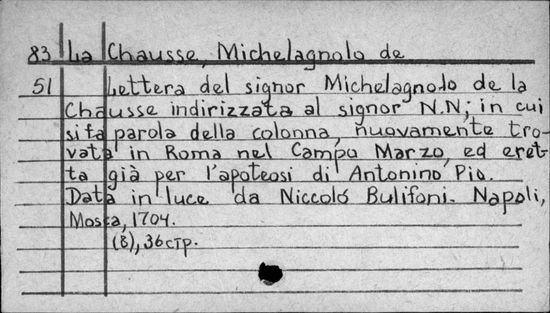 83 La Chausse, Michelagnolo de
51 Lettera del signor Michelagnolo de la
Chausse indirizzata al signor N.N; in cui
si fa parola della colonna, nuovamente tro-
vata in Roma nel Campo Marzo, ed eret-
ta già per l'apoteosi di Antonino Pio.
Data in luce da Niccoló Bulifoni. Napoli,
Mosca, 1704.
(8), 36 стр.